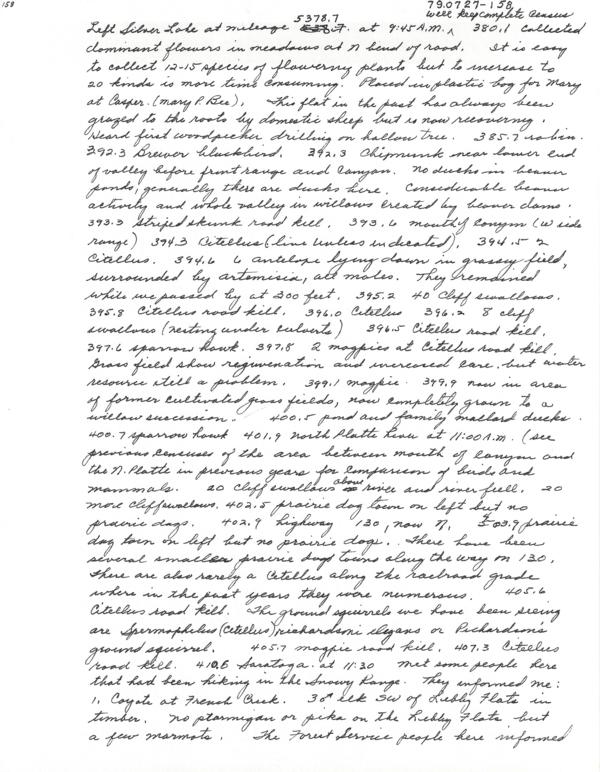 158
79.0727-158
will keep complete census
5378.7
Left Silver Lake at mileage at 9:45 A.M. 380.1 collected
dominant flowers in meadows at N bend of road. It is easy
to collect 12-15 species of flowering plants but to increase to
20 kinds is more time consuming. Placed in plastic bag for Mary
at Casper. (Mary P. Bee). This flat in the past has always been
grazed to the roots by domestic sheep but is now recovering.
Heard first woodpecker drilling on hollow tree. 385.7 robin.
392.3 Brewer blackbird. 392.3 Chipmunk near lower end
of valley before front range and canyon. No ducks in beaver
ponds, generally there are ducks here. Considerable beaver
activity and whole valley in willows created by beaver dams.
393.3 striped skunk road kill. 393.6 mouth of canyon (W side
range) 394.3 Citellus (live unless indicated). 394.5 2
Citellus. 394.6 6 antelope lying down in grassy field,
surrounded by artemisia, all males. They remained
while we passed by at 200 feet. 395.2 40 cliff swallows.
395.8 Citellus road kill. 396.0 Citellus 396.2 8 cliff
swallows (nesting under culverts) 396.5 Citellus road kill.
397.6 sparrow hawk. 397.8 2 magpies at Citellus road kill.
Grass field show rejuvenation and increased care, but water
resource still a problem. 399.1 magpie. 399.9 now in area
of former cultivated grass fields, now completely grown to a
willow succession. 400.5 pond and family mallard ducks.
400.7 sparrow hawk 401.9 North Platte River at 11:00 A.M. (see
previous censuses of the area between mouth of canyon and
the N. Platte in previous years for comparison of birds and
mammals. 20 cliff swallows above river and river full. 20
more cliff swallows. 402.5 prairie dog town on left but no
prairie dogs. 402.9 highway 130, now N. 403.9 prairie
dog town on left but no prairie dogs. There have been
several smaller prairie dog towns along the way on 130.
There are also rarely a Citellus along the railroad grade
where in the past years they were numerous. 405.6
Citellus road kill. The ground squirrels we have been seeing
are Spermophilus (Citellus) richardsoni elegans or Richardson's
ground squirrel. 405.7 magpie road kill. 407.3 Citellus
road kill. 410.6 Saratoga at 11:30 Met some people here
that had been hiking in the Snowy Range. They informed me:
1. Coyote at French Creek. 30+ elk SW of Libby Flats in
timber. No ptarmigan or pika on the Libby Flats but
a few marmots. The Forest Service people here informed